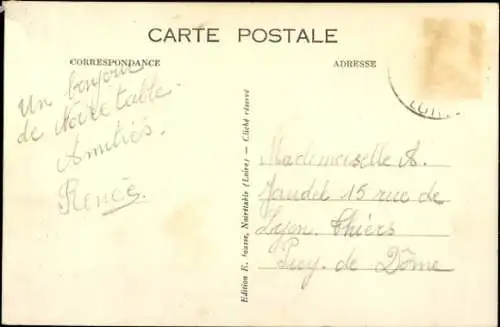 CARTE POSTALE
CORRESPONDANCE
Un bonjour
de Noirétable.
Amitiés.
Renée.
Edition E. Sausse, Noirétable (Loire) - Cliché réservé
ADRESSE
Mademoiselle A.
Jaudel 15 rue de
Lyon. Thiers
Puy. de Dôme